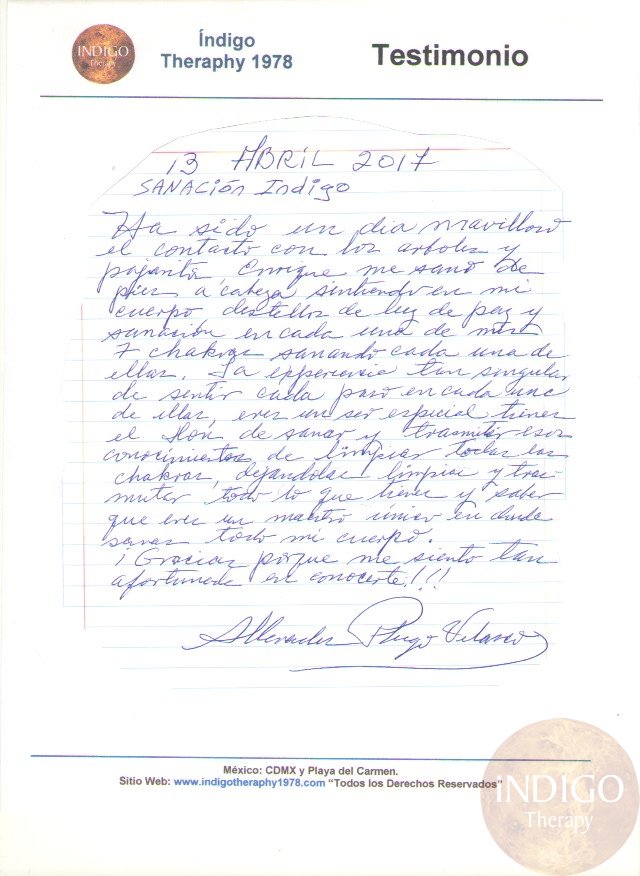 INDIGO
Therapy
Índigo
Theraphy 1978
Testimonio
13 ABRIL 2017
SANACIÓN Indigo
Ha sido un dia mavilloso
el contacto con los arboles y
pajarito, Enrique me sano de
pies a cabeza, sintiendo en mi
cuerpo destellos de luz de paz y
sanación en cada una de mis
7 chakras sanando cada una de
ellas. La experiencia tan singular
de sentir cada paso en cada una
de ellas, eres un ser especial tienes
el don de sanar y trasmitir esos
conocimientos de limpiar todas las
chakras, dejándolas limpias y tras-
mitir todo lo que tienes y saber
que eres un maestro único en donde
sanas todo mi cuerpo.
¡Gracias porque me siento tan
afortunada en conocerte!!!
Velasco
México: CDMX y Playa del Carmen.
Sitio Web: www.indigotheraphy1978.com "Todos los Derechos Reservados"
INDIGO
Therapy